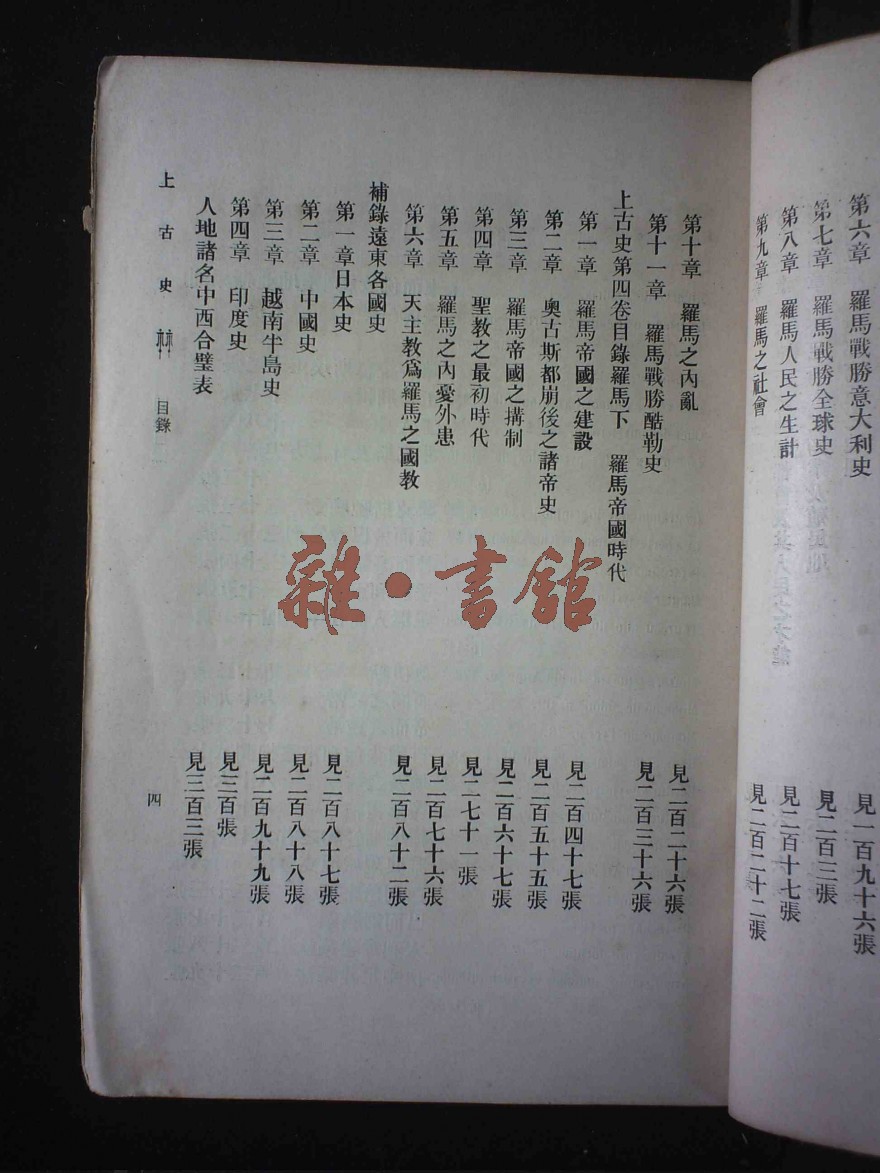 第六章 羅馬戰勝意大利史 見一百九十六張
第七章 羅馬戰勝全球史 見二百三張
第八章 羅馬人民之生計 見二百十七張
第九章 羅馬之社會 見二百二十二張
第十章 羅馬之內亂 見二百二十六張
第十一章 羅馬戰勝酷勒史 見二百三十六張
上古史第四卷目錄羅馬下 羅馬帝國時代
第一章 羅馬帝國之建設 見二百四十七張
第二章 奧古斯都崩後之諸帝史 見二百五十五張
第三章 羅馬帝國之搆制 見二百六十七張
第四章 聖教之最初時代 見二七十一張
第五章 羅馬之內憂外患 見二百七十六張
第六章 天主教爲羅馬之國教 見二百八十二張
補錄遠東各國史
第一章日本史 見二百八十七張
第二章 中國史 見二百八十八張
第三章 越南半島史 見二百九十九張
第四章 印度史 見三百張
人地諸名中西合璧表 見三百三張
上古史 目錄 四
雜·書館